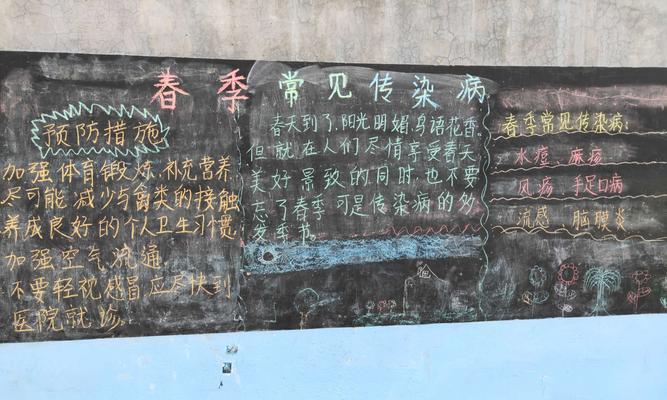 春季常见传染病
预防措施
加强体育锻炼.补充营养
尽可能减少与禽类的接触
养成良好的个人卫生习惯
加强空气流通
不要轻视感冒应尽快到
医院就诊。
春天到了,阳光明媚,鸟语花香。
但就在人们尽情享受春天
美好景致的同时,也不要
忘了春季可是传染病的多
发季节。
春季常见传染病:
水痘 麻疹
风疹 手足口病
流感 脑膜炎